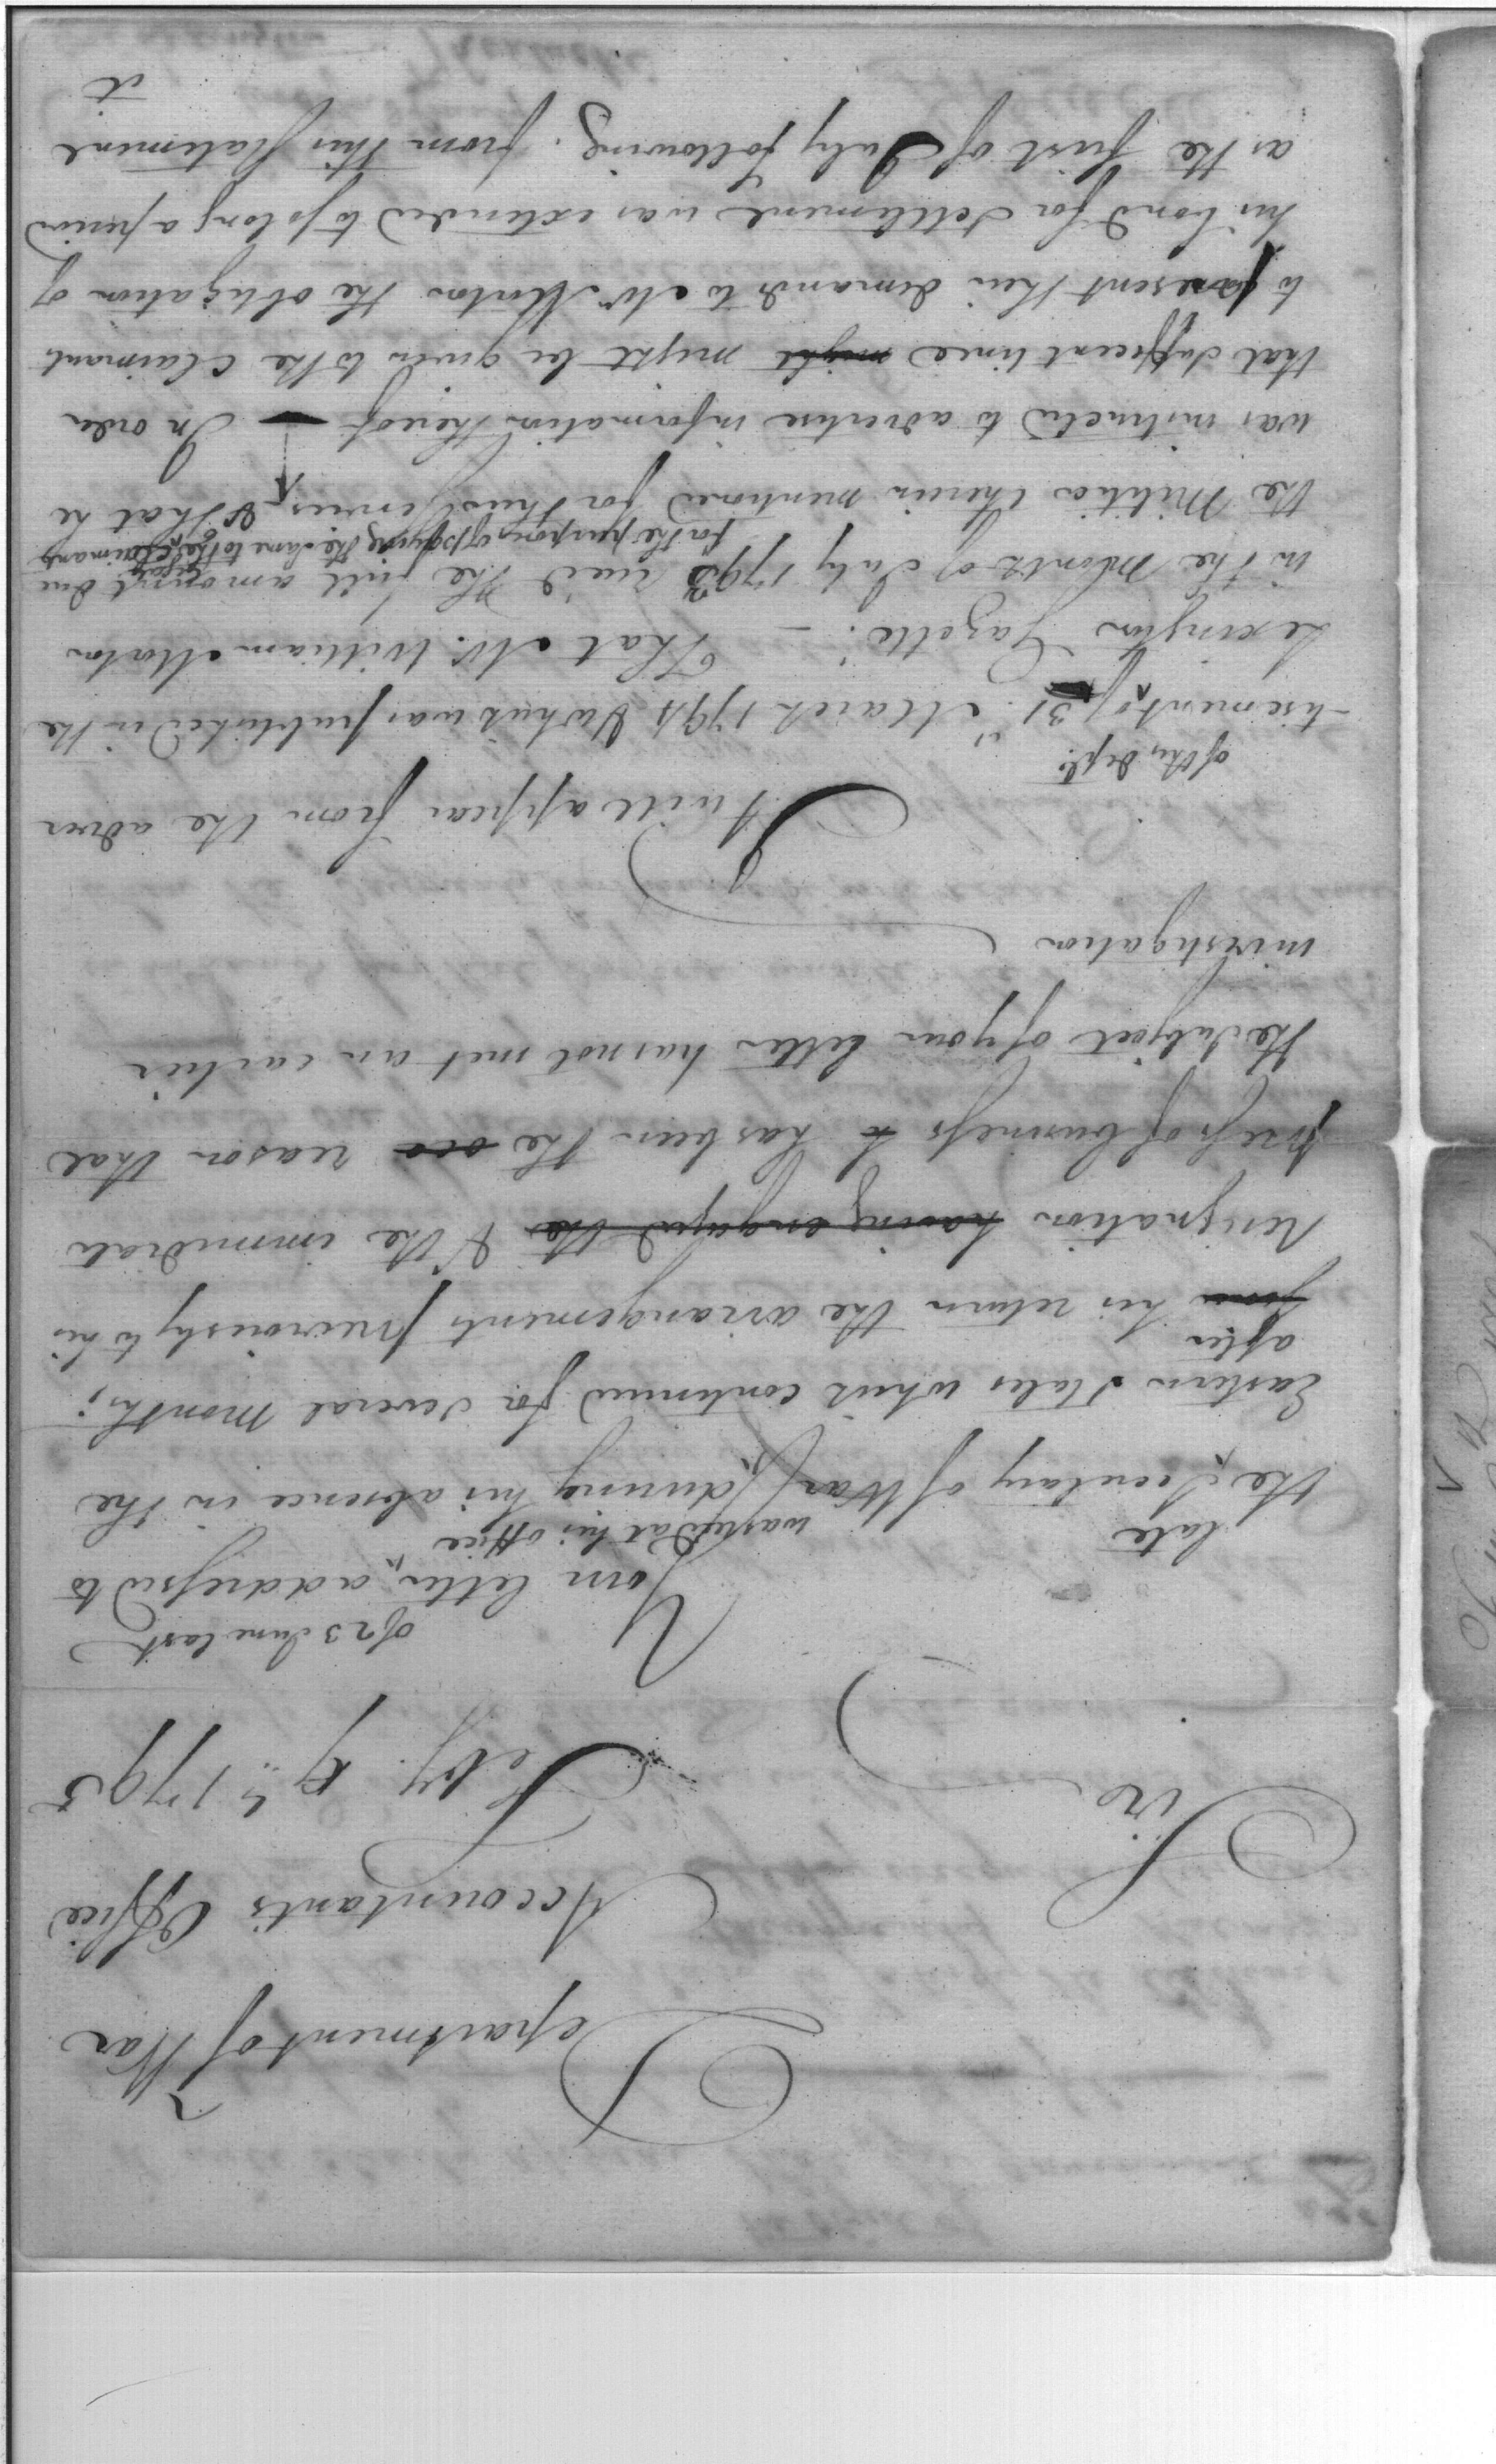 Department of War
Accountants Office
Feby 9th 1795
Sir
of 23 June last
Your letter addressed to
late was rec'd at his office
the Secretary of War, during his absence in the
Eastern States which continued for several Months;
after
from his return the arrangements previously to his
resignation having engaged the & the immediate
press of business to has been the reason that
the subject of your letter has not met an earlier
investigation
It will appear from the adver
of this dept.
-tisement of 31st March 1794 & which was published in the
Lexington Gazette. — That Mr. William Morton
in the Month of July 1793 rec'd the full amount due
for the purpose of paying the same to the Claimants
the Militia therein mentioned for their services, & that he
was instructed to advertise information thereof — In order
that sufficient time might might be given to the Claimants
to present their demands to Mr Morton the obligation of
his bond for settlement was extended to so long a period
as the first of July following. from this statement
it